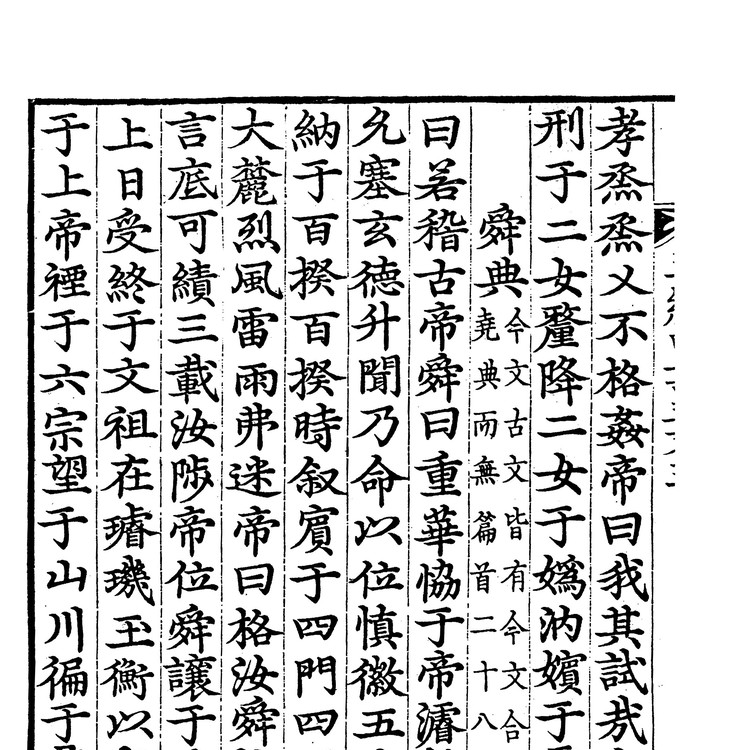 孝烝烝乂不格姦帝曰我其試哉
刑于二女釐降二女于嬀汭嬪于
舜典
今文古文皆有今文合
堯典而無篇首二十八
曰若稽古帝舜曰重華協于帝濬
允塞玄德升聞乃命以位慎徽五
納于百揆百揆時叙賓于四門四
大麓烈風雷雨弗迷帝曰格汝舜
言底可績三載汝陟帝位舜讓于
上日受終于文祖在璿璣玉衡以
于上帝禋于六宗望于山川徧于